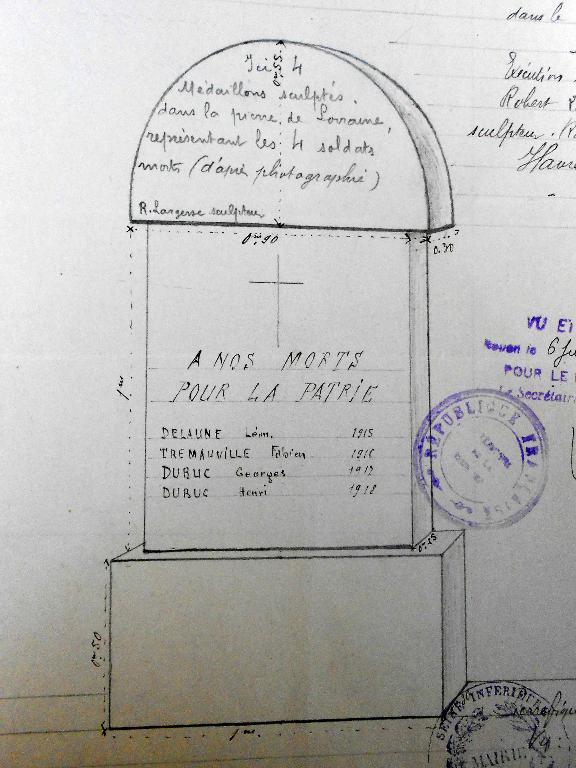 dans le
Exécution
Robert
sculpteur.
Havre
0m55
Ici 4
Médaillons sculptés.
dans la pierre de Lorraine,
représentant les 4 soldats
morts (d'après photographie)
R. Largesse sculpteur
0m90
0.30
1m
A NOS MORTS
POUR LA PATRIE
DELAUNE Léon. 1915
TREMAUVILLE Fabien 1916
DUBUC Georges 1917
DUBUC Henri 1918
0m15
0m50
1m.
VU ET
Rouen le 6
POUR LE
Le Secrétaire
RÉPUBLIQUE FRANÇAISE
SEINE INFERIEURE
MAIRIE